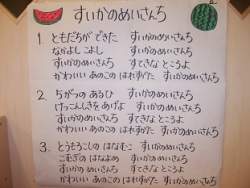 すいかのめいさんち
1. ともだちが できた すいかのめいさんち
なかよし こよし すいかのめいさんち
すいかのめいさんち すてきな ところよ
かわいい あのこの はれすがた すいかのめいさんち
2. 5がつの あるひ すいかのめいさんち
けっこんしきを あげよ すいかのめいさんち
すいかのめいさんち すてきな ところよ
かわいい あのこの はれすがた すいかのめいさんち
3. とうもろこしの はなむこ すいかのめいさんち
こむぎの はなよめ すいかのめいさんち
すいかのめいさんち すてきな ところよ
かわいい あのこの はれすがた すいかのめいさんち